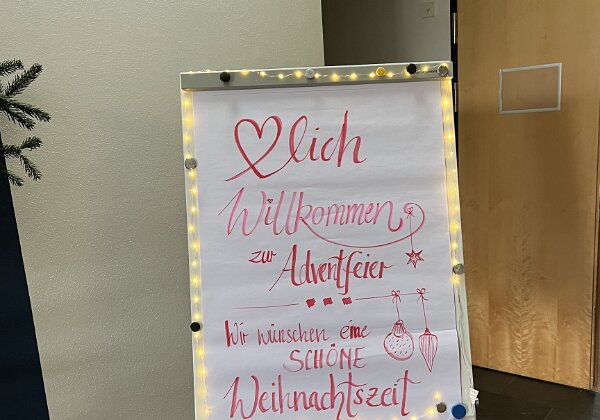 ♡lich
Willkommen
zur Adventfeier
Wir wünschen eine
SCHÖNE
Weihnachtszeit